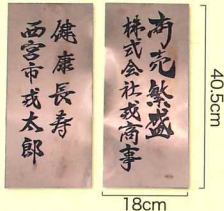 商売繁盛
株式会社戎商事
健康長寿
西宮市戎太郎
40.5cm
18cm